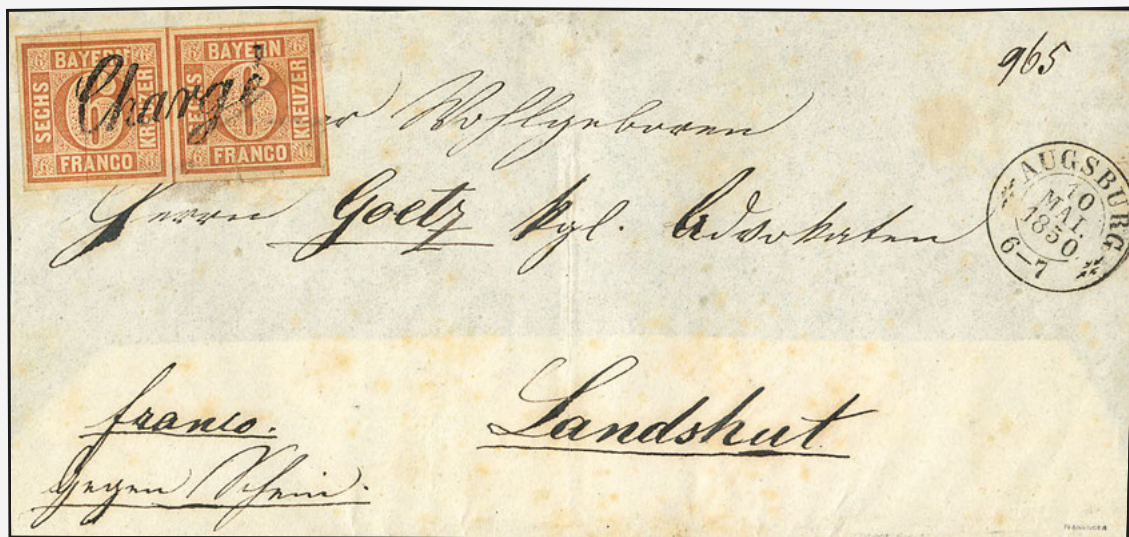 BAYERN
SECHS 6 KREUZER
FRANCO
BAYERN
SECHS 6 KREUZER
FRANCO
Chargé
965
Wohlgeboren
Herrn Goetz kgl. Advokaten
AUGSBURG
10
MAI.
1850.
6–7
franco.
Landshut
gegen Schein.